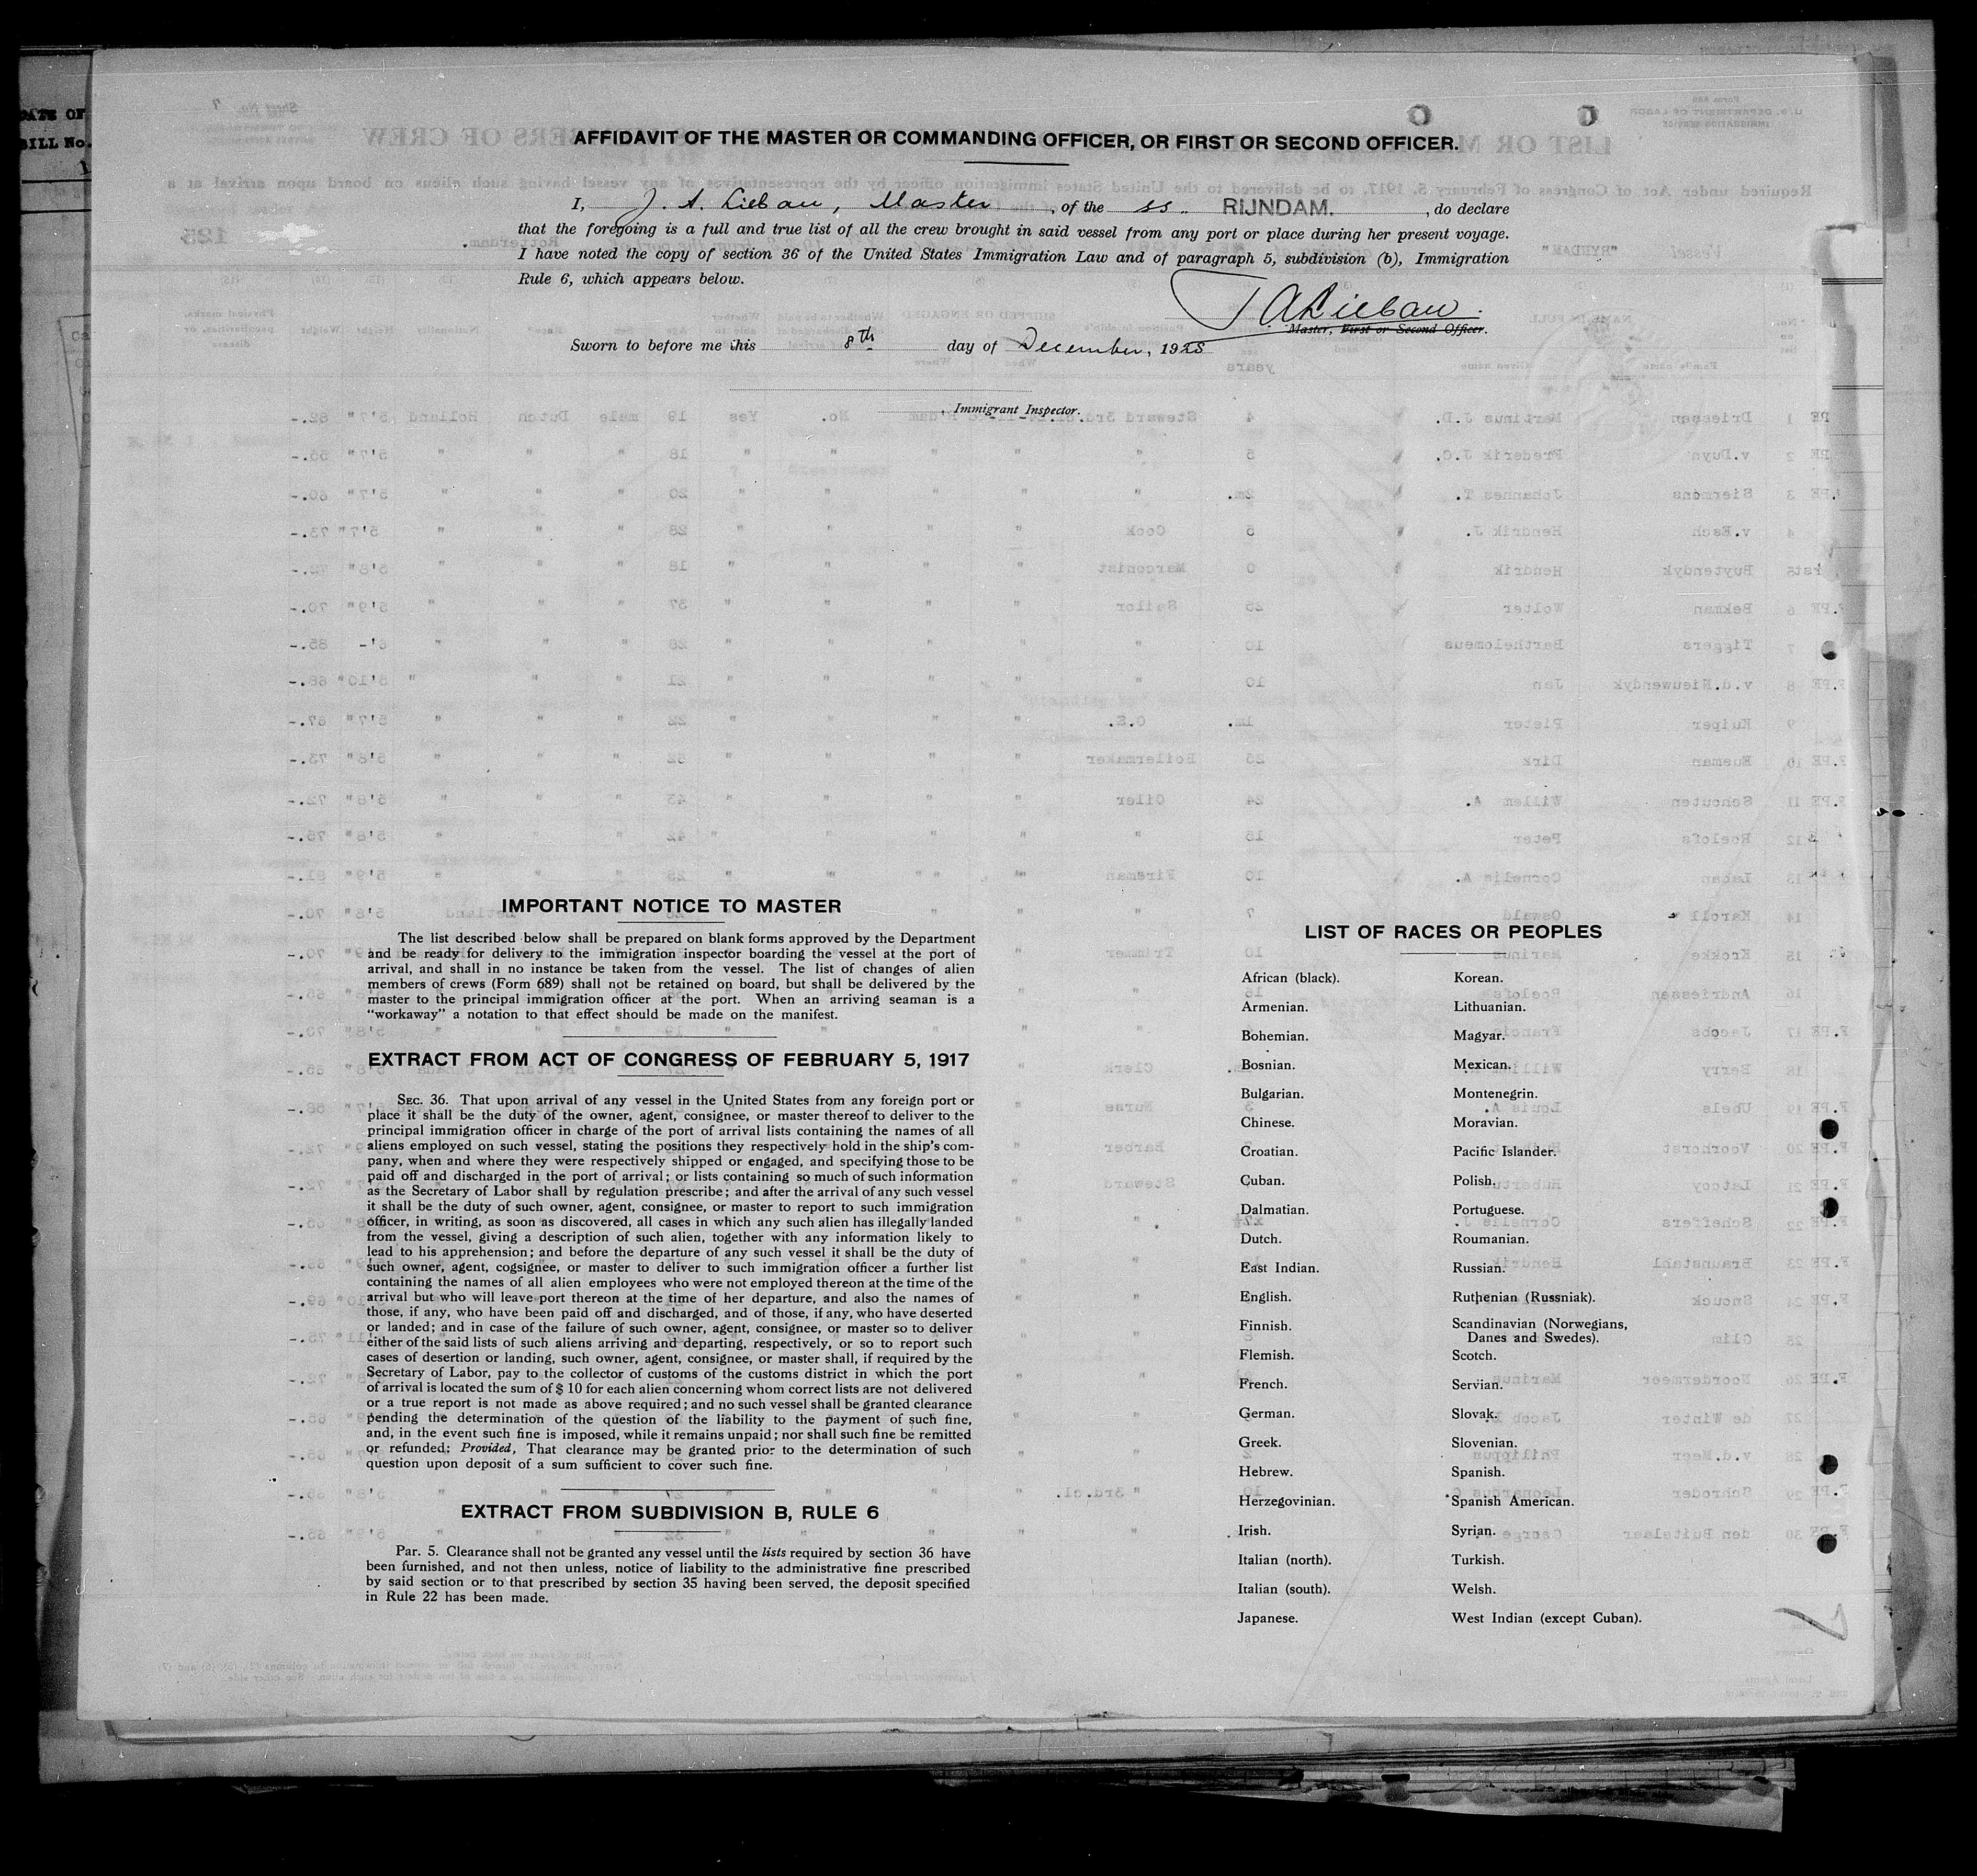 DATE OF
BILL No.
AFFIDAVIT OF THE MASTER OR COMMANDING OFFICER, OR FIRST OR SECOND OFFICER.
I, J. A. Liebau, Master, of the ss. RIJNDAM., do declare
that the foregoing is a full and true list of all the crew brought in said vessel from any port or place during her present voyage.
I have noted the copy of section 36 of the United States Immigration Law and of paragraph 5, subdivision (b), Immigration
Rule 6, which appears below.
JALiebau.
Master, First or Second Officer.
Sworn to before me this 8th day of December, 1925
, Immigrant Inspector.
IMPORTANT NOTICE TO MASTER
The list described below shall be prepared on blank forms approved by the Department
and be ready for delivery to the immigration inspector boarding the vessel at the port of
arrival, and shall in no instance be taken from the vessel. The list of changes of alien
members of crews (Form 689) shall not be retained on board, but shall be delivered by the
master to the principal immigration officer at the port. When an arriving seaman is a
“workaway” a notation to that effect should be made on the manifest.
EXTRACT FROM ACT OF CONGRESS OF FEBRUARY 5, 1917
SEC. 36. That upon arrival of any vessel in the United States from any foreign port or
place it shall be the duty of the owner, agent, consignee, or master thereof to deliver to the
principal immigration officer in charge of the port of arrival lists containing the names of all
aliens employed on such vessel, stating the positions they respectively hold in the ship's com-
pany, when and where they were respectively shipped or engaged, and specifying those to be
paid off and discharged in the port of arrival; or lists containing so much of such information
as the Secretary of Labor shall by regulation prescribe; and after the arrival of any such vessel
it shall be the duty of such owner, agent, consignee, or master to report to such immigration
officer, in writing, as soon as discovered, all cases in which any such alien has illegally landed
from the vessel, giving a description of such alien, together with any information likely to
lead to his apprehension; and before the departure of any such vessel it shall be the duty of
such owner, agent, cogsignee, or master to deliver to such immigration officer a further list
containing the names of all alien employees who were not employed thereon at the time of the
arrival but who will leave port thereon at the time of her departure, and also the names of
those, if any, who have been paid off and discharged, and of those, if any, who have deserted
or landed; and in case of the failure of such owner, agent, consignee, or master so to deliver
either of the said lists of such aliens arriving and departing, respectively, or so to report such
cases of desertion or landing, such owner, agent, consignee, or master shall, if required by the
Secretary of Labor, pay to the collector of customs of the customs district in which the port
of arrival is located the sum of $ 10 for each alien concerning whom correct lists are not delivered
or a true report is not made as above required; and no such vessel shall be granted clearance
pending the determination of the question of the liability to the payment of such fine,
and, in the event such fine is imposed, while it remains unpaid; nor shall such fine be remitted
or refunded: Provided, That clearance may be granted prior to the determination of such
question upon deposit of a sum sufficient to cover such fine.
EXTRACT FROM SUBDIVISION B, RULE 6
Par. 5. Clearance shall not be granted any vessel until the lists required by section 36 have
been furnished, and not then unless, notice of liability to the administrative fine prescribed
by said section or to that prescribed by section 35 having been served, the deposit specified
in Rule 22 has been made.
LIST OF RACES OR PEOPLES
African (black).
Armenian.
Bohemian.
Bosnian.
Bulgarian.
Chinese.
Croatian.
Cuban.
Dalmatian.
Dutch.
East Indian.
English.
Finnish.
Flemish.
French.
German.
Greek.
Hebrew.
Herzegovinian.
Irish.
Italian (north).
Italian (south).
Japanese.
Korean.
Lithuanian.
Magyar.
Mexican.
Montenegrin.
Moravian.
Pacific Islander.
Polish.
Portuguese.
Roumanian.
Russian.
Ruthenian (Russniak).
Scandinavian (Norwegians,
Danes and Swedes).
Scotch.
Servian.
Slovak.
Slovenian.
Spanish.
Spanish American.
Syrian.
Turkish.
Welsh.
West Indian (except Cuban).